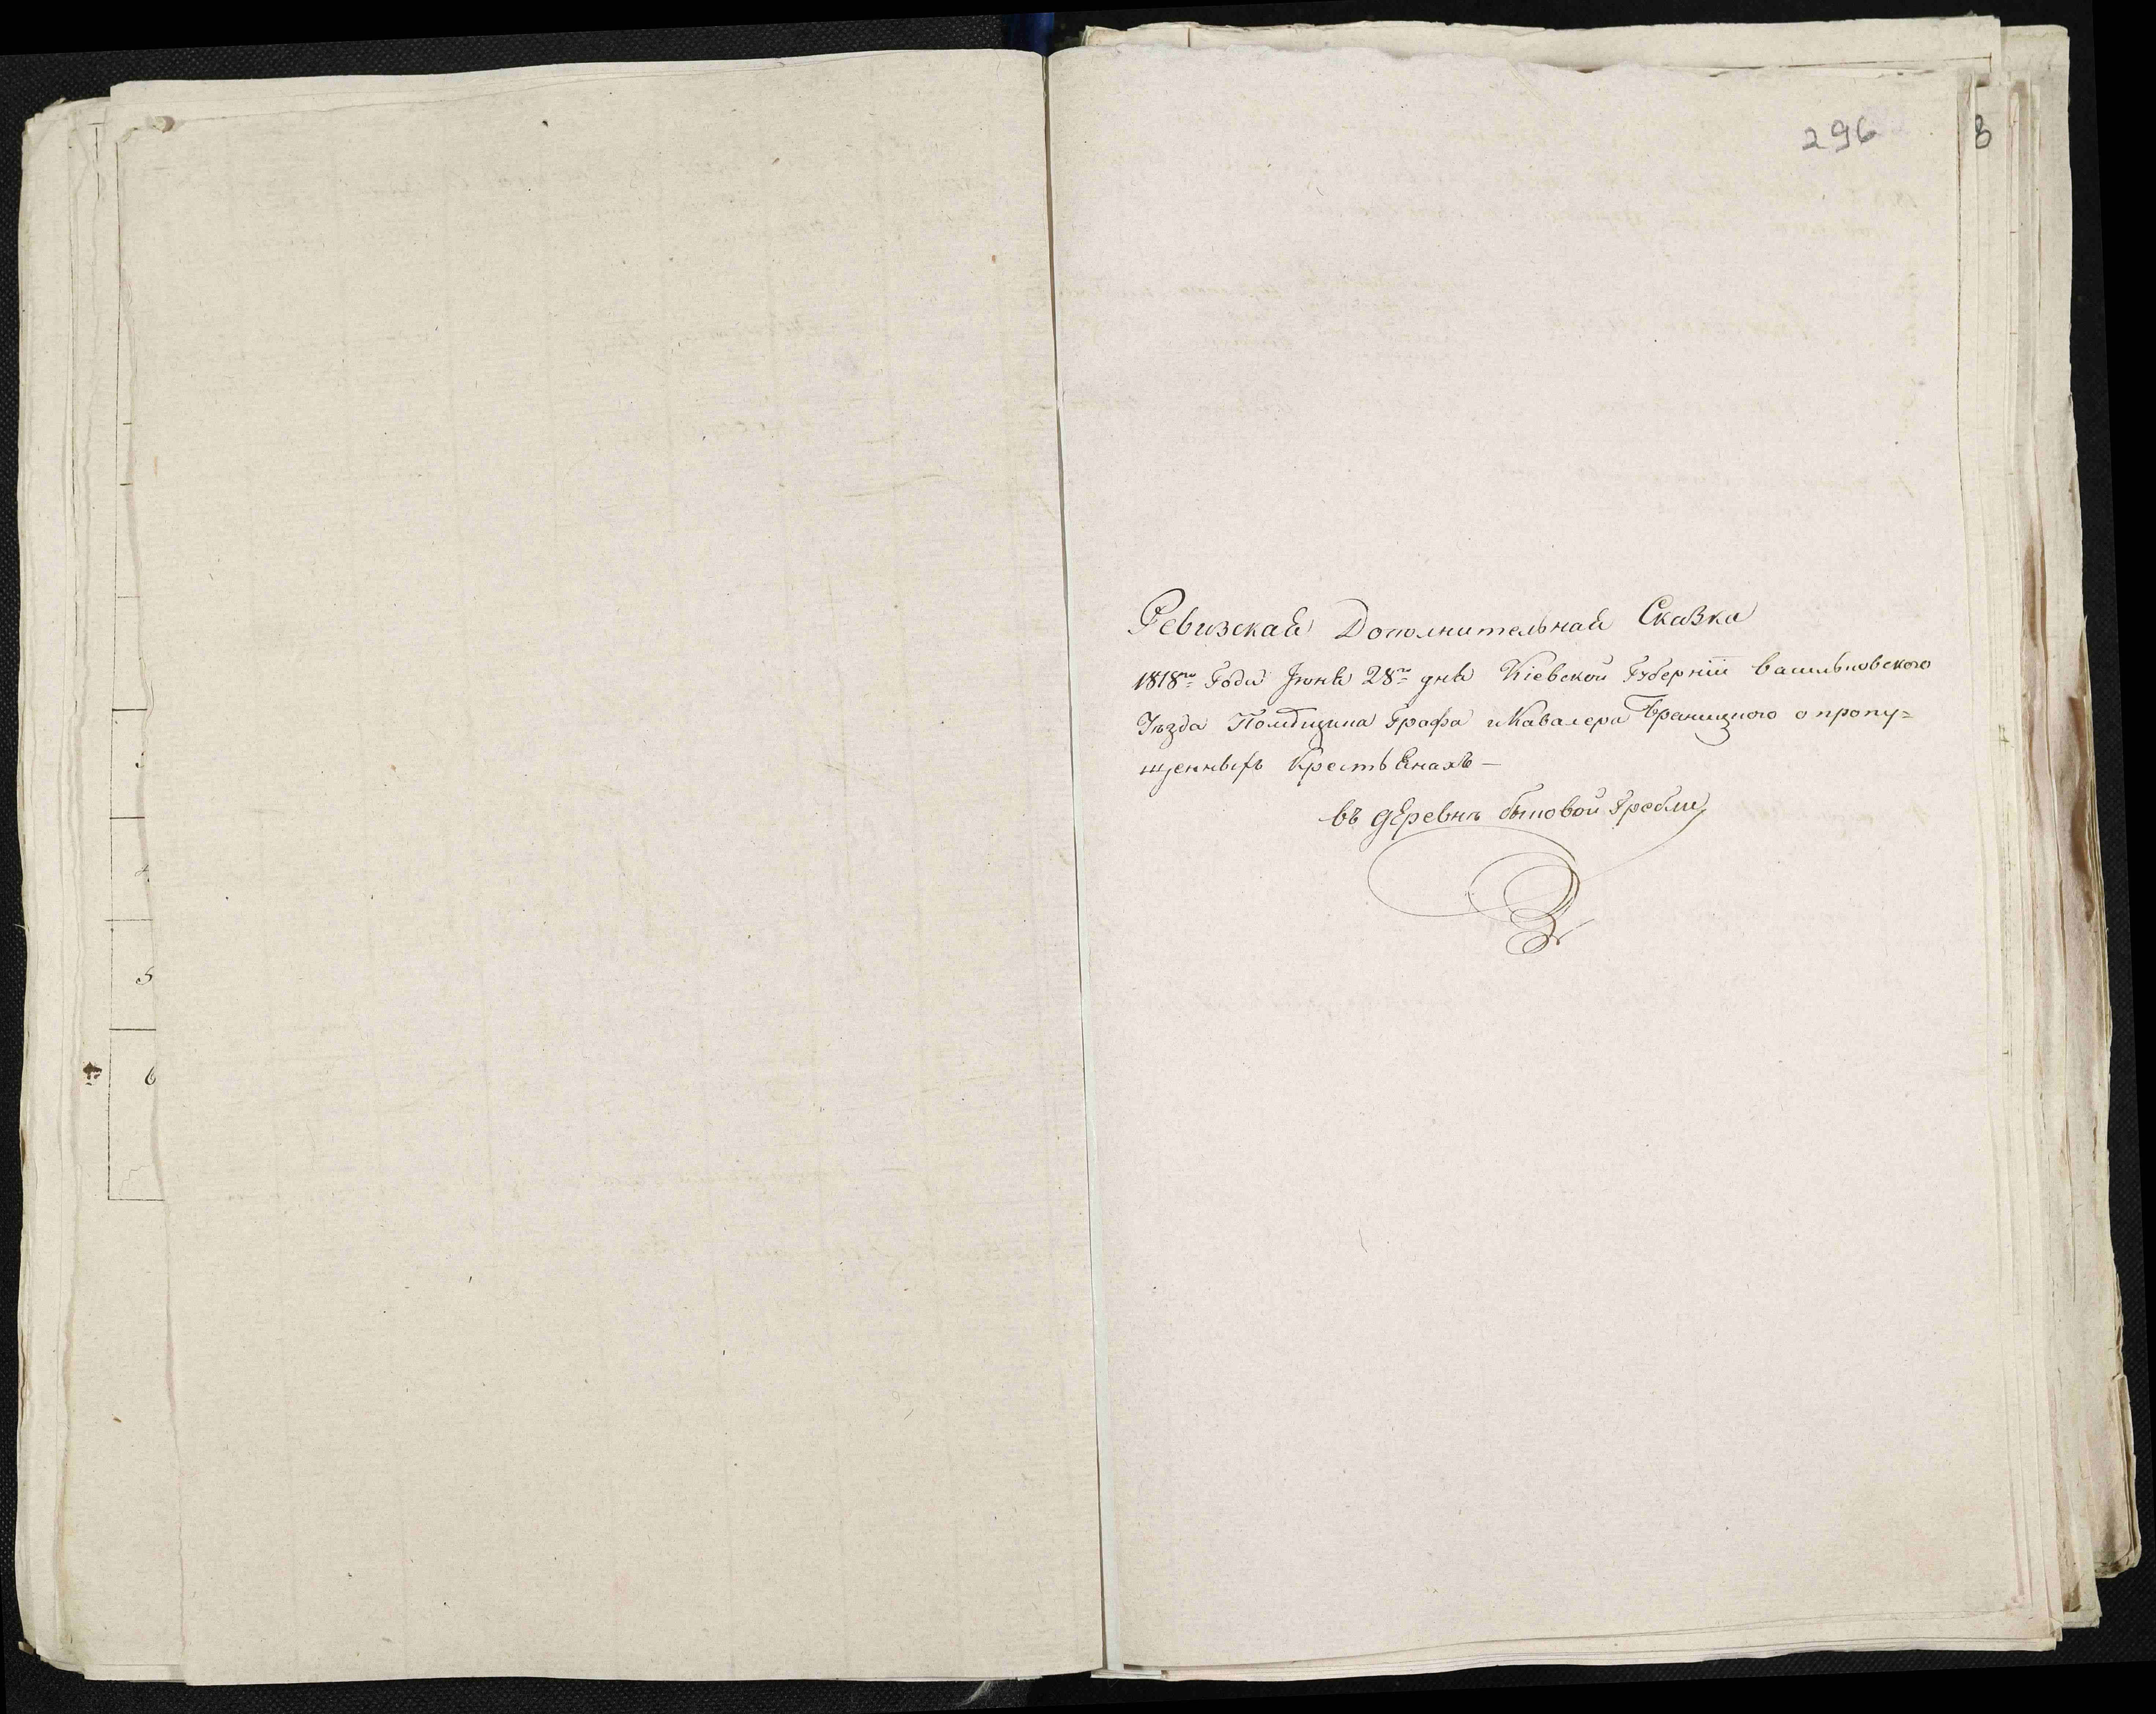 296
Ревизская Дополнительная Сказка
1818го Года Іюня 28го дня Кіевской Губерніи васильковского
Уѣзда Помещика Графа и Кавалера Браницкого о пропу=
щенныхъ Крестьянахъ —
въ дЕревнѣ быковой Гребли
3
4
5
6